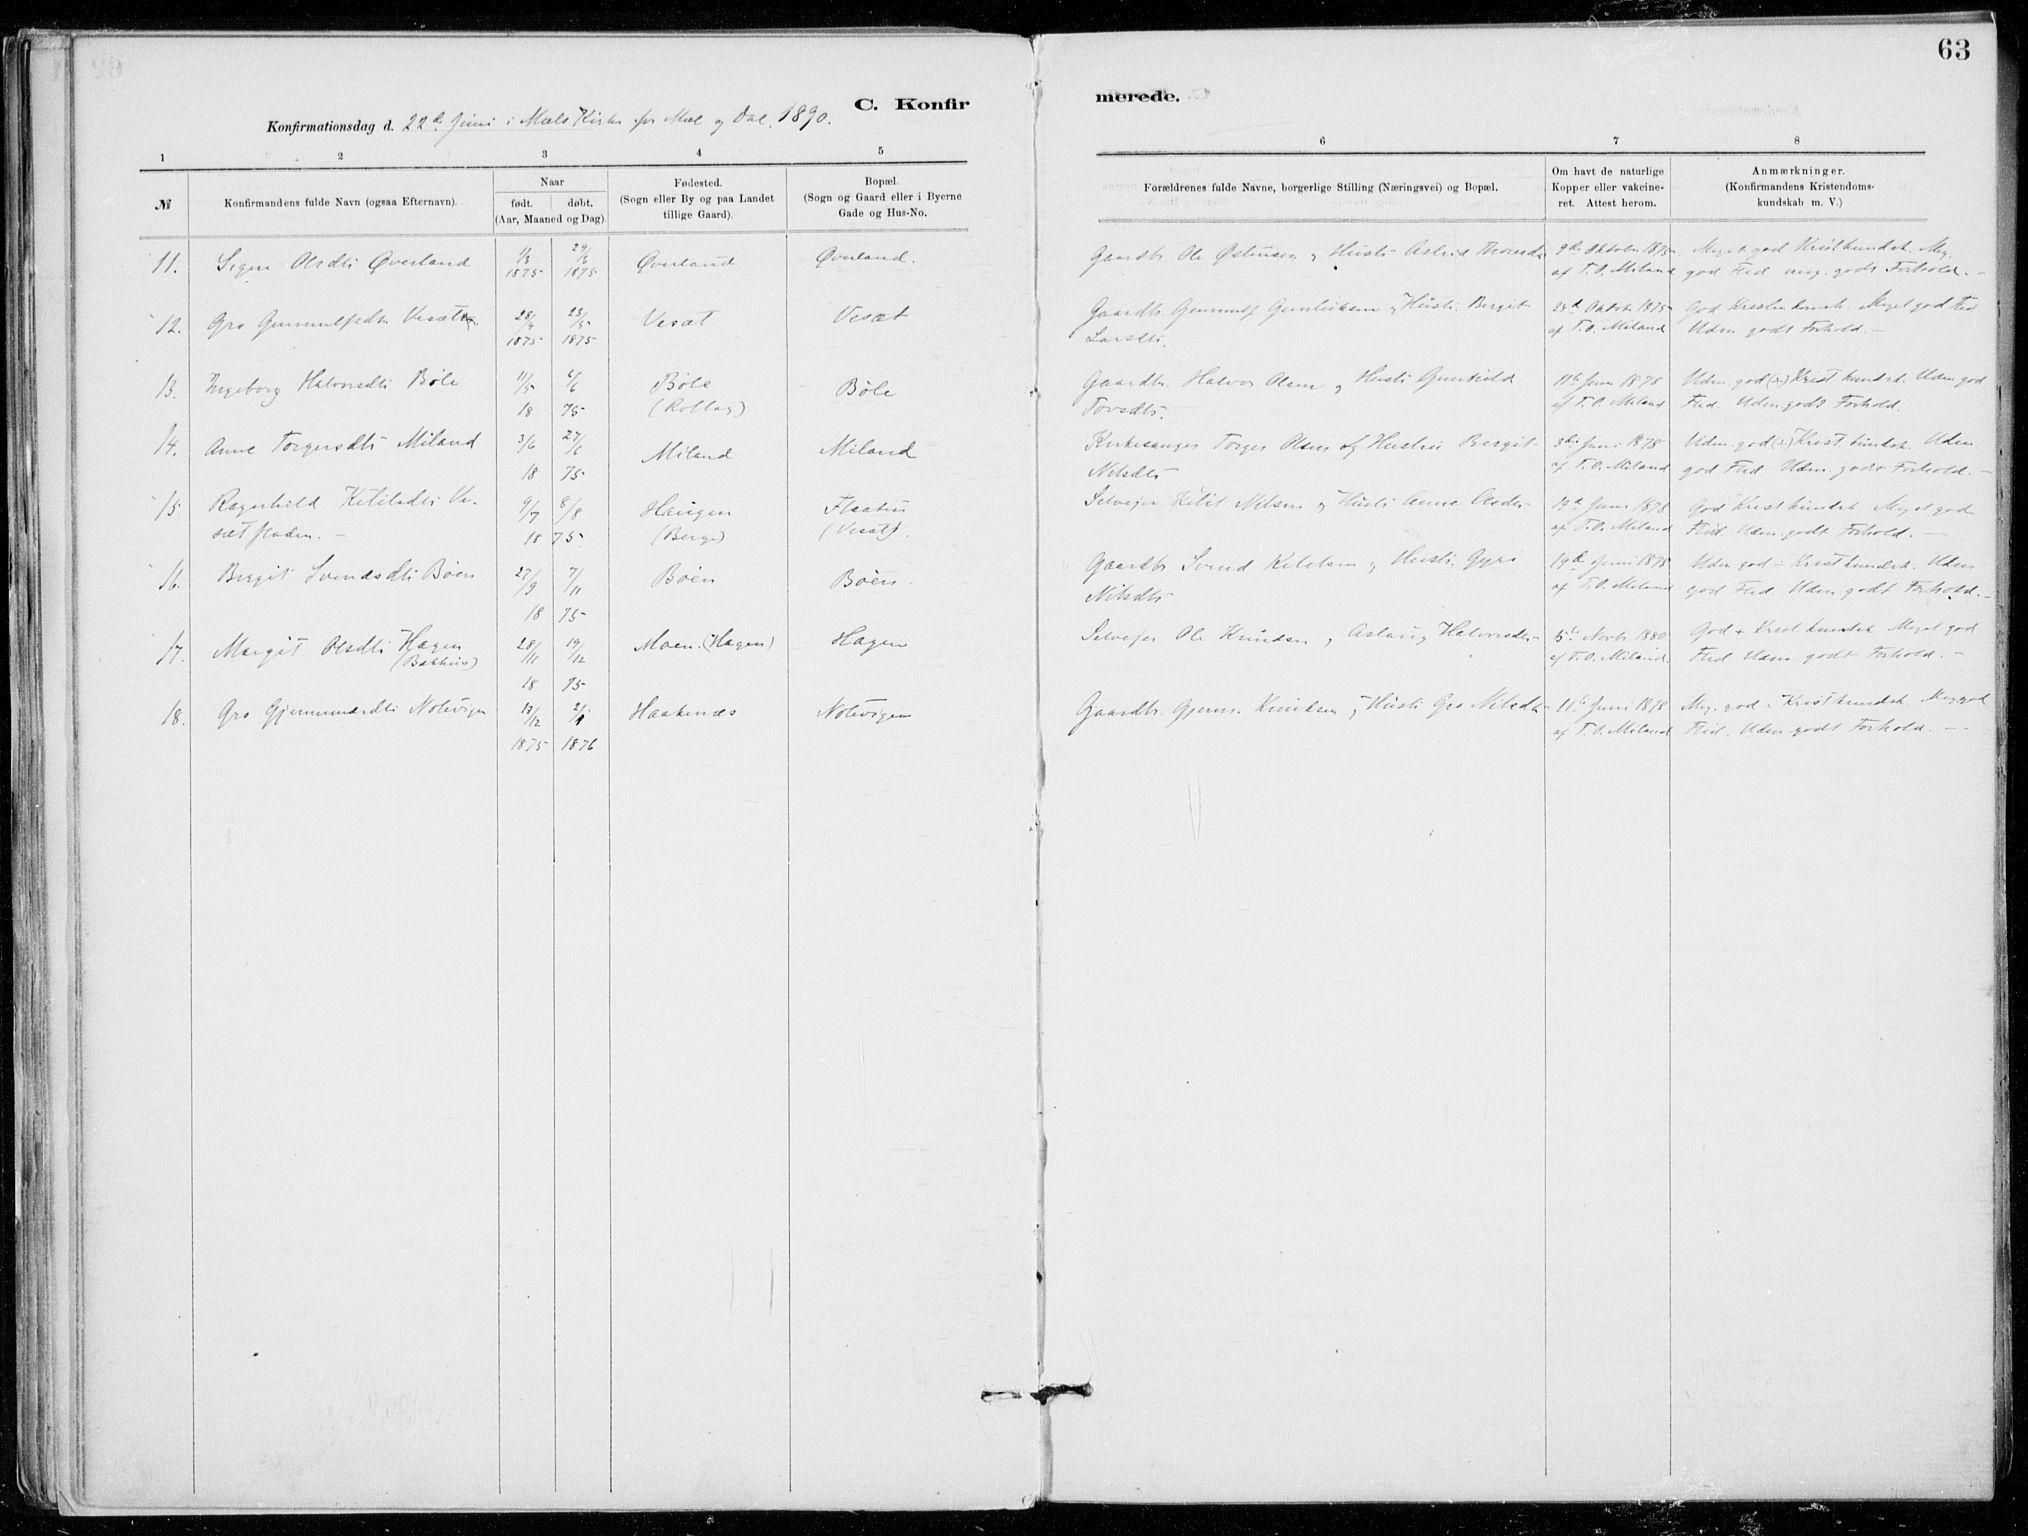 63
C. Konfir
merede.
Konfirmationsdag d. 22de Juni i Mæls Kirke for Mæl og Dal. 1890.
1 2 3 4 5
6 7 8
№
Konfirmandens fulde Navn (ogsaa Efternavn).
Naar
født. døbt.
(Aar, Maaned og Dag).
Fødested.
(Sogn eller By og paa Landet
tillige Gaard).
Bopæl.
(Sogn og Gaard eller i Byerne
Gade og Hus-No.
Forældrenes fulde Navne, borgerlige Stilling (Næringsvei) og Bopæl.
Om havt de naturlige
Kopper eller vakcine-
ret. Attest herom.
Anmærkninger.
(Konfirmandens Kristendoms-
kundskab m. V.)
11. Signe Olsdti Øverland Øverland Øverland.
1875 1875
Gaardbr. Ole Østensen og Hustr. Astrid 9de Oktober 1875 Meget god Kristkundsk. Meg.
af T.O. Miland god Flid meg. godt Forhold. -
12. Gro Vesæt 28/4 23/5 Vesæt Vesæt
1875 1875
Gaardbr. og Hustr. Bergit 24d Oktob. 1875 God Meget god Flid
Larsdtr. af T.O. Miland Uden godt Forhold. -
13. Ingeborg Halvorsdti Bøle 11/5 6/6 Bøle Bøle
18 75 (Rollag)
Gaardbr. Halvor Olsen og Hustr. Gunhild 11te Juni 1878 Udm. god (÷) Krist.kundsk. Udm. god
Torsdtr. af T.O. Miland Flid. Udm. godt Forhold.
14. Anne Torgersdti Miland 3/6 27/6 Miland Miland
18 75
Kirkesanger Torger Olsen og Hustru Bergit 3die Juni 1878 Udm. god (÷) Krist.kundsk. Udm.
Nilsdtr af T.O. Miland god Flid Udm. godt Forhold. -
15. Ragnhild Ketilsdti Ve- 9/7 8/8 Haugen Flaatin
sæt fladen. - 18 75 (Berge) (Vesæt).
Selveier Ketil Nilsen og Hustr. Anne Olsdtr. Juni 1878 God Krist.kundsk. Meget god
af T.O. Miland Flid. Udm. godt Forhold. -
16. Birgit Svendsdti Bøen 27/9 7/11 Bøen Bøen
18 75
Gaardbr. Svend Ketilsen og Hustr. Gyri 19de Juni 1878 Udm. god ÷ Krist.kundsk. Udm.
Nilsdtr af T.O. Miland god Flid. Udm. godt Forhold. -
17. Margit Olsdti Hagen 28/11 19/12 Moen. (Hagen) Hagen
(Bakhus) 18 75
Selveier Ole Knudsen og Aslaug Halvorsdtr. 5te Novbr. 1880 God + Krist.kundsk. Meget god
af T.O. Miland. Flid Udm. godt Forhold. -
18. Gro Gjermundsdti Notevigen 13/12 2/1 Haakenæs Notevigen
1875 1876
Gaardbr. Gjerm. Knudsen og Hustr. Gro Nilsdtr 11te Juni 1878 Meg. god ÷ Kristkundsk. Meg. god
af T.O. Miland Flid. Udm. godt Forhold. -